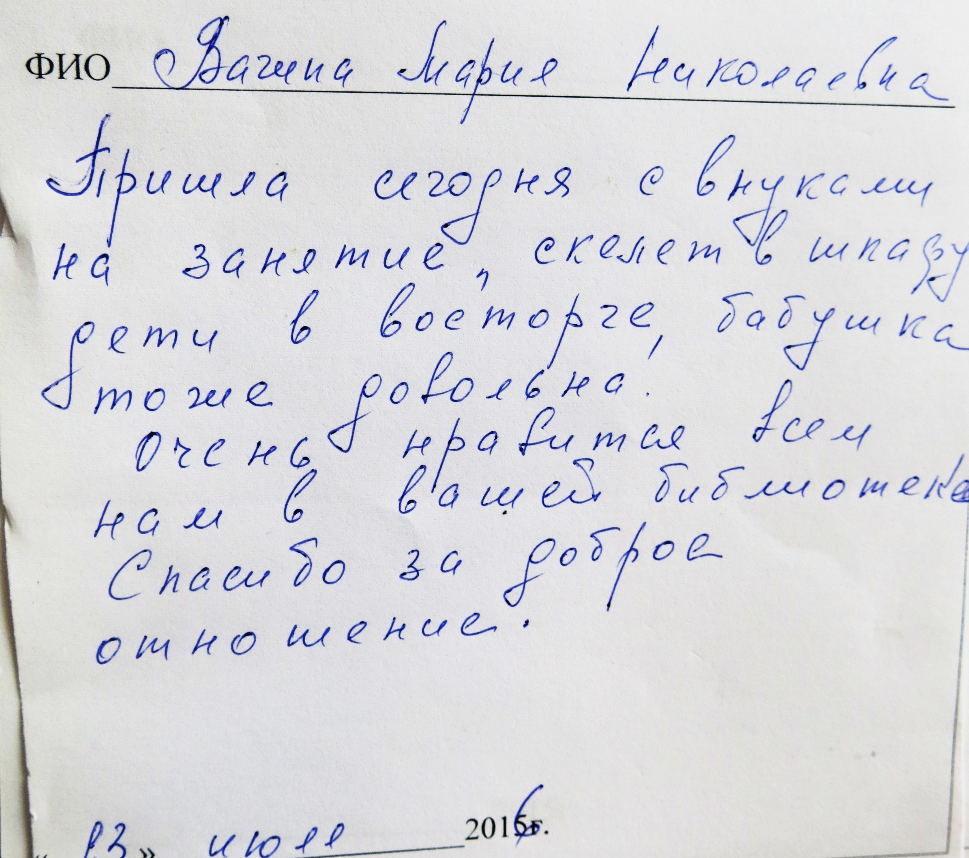 ФИО Вагина Мария Николаевна
Пришла сегодня с внуками
на занятие „скелет в шкафу
дети в восторге, бабушка
тоже довольна.
Очень нравится всем
нам в вашей библиотеке
Спасибо за доброе
отношение.
„ 13 " июля 2016г.